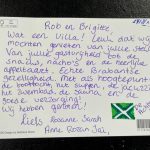 Rob en Brigitte,
Wat een Villa! Leuk dat wij
mochten genieten van jullie stulp
Van jullie gastvrijheid tot de
snacks, nacho's en de heerlijke
appeltaart. Echte Brabantse
gezelligheid. Met als hoogtepunt
de boottocht, het suppen, de jacuzzi
het zwembad, de sauna en de
goeie verzorging!
Wij hebben genoten!
Liefs Rosanne Sarah
Anne Rozan Jai